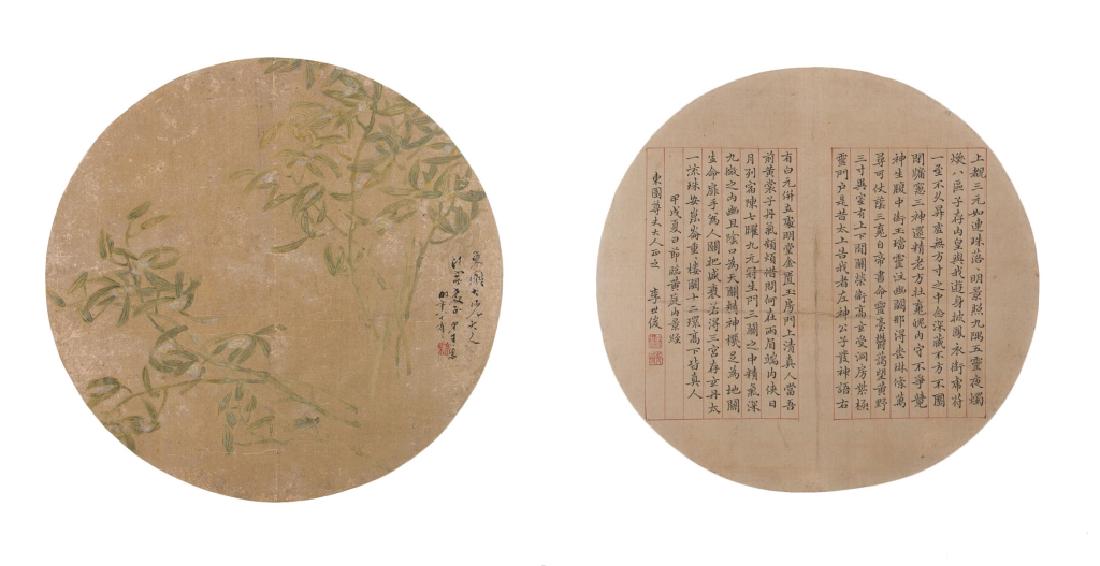 上覩三元如連珠落〻明景照九隅五靈夜燭
焕八區子存內皇與我遊身披鳳衣銜虎符
一至不久昇虛無方寸之中念深藏不方不圓
閉牖窻三神還精老方壯魂魄內守不爭競
神生腹中銜玉璫靈注幽闕那得喪琳條萬
尋可仗蔭三魂自寧帝書命靈臺欝藹望黃野
三寸異室有上下間關榮衛高玄受洞房紫極
靈門戶是昔太上告我者左神公子發神語右
有白元併立處明堂金匱玉房間上清真人當吾
前黃裳子丹氣頻煩借問何在兩眉端內俠日
月列宿陳七曜九元冠生門三關之中精氣深
九微之內幽且陰口為天關精神機足為地關
生命扉手為人關把盛衰若得三宮存玄丹太
一流珠安崑崙重樓關十二環高下皆真人
甲戌夏日節臨黃庭內景經
東園尊丈大人正之 李世俊